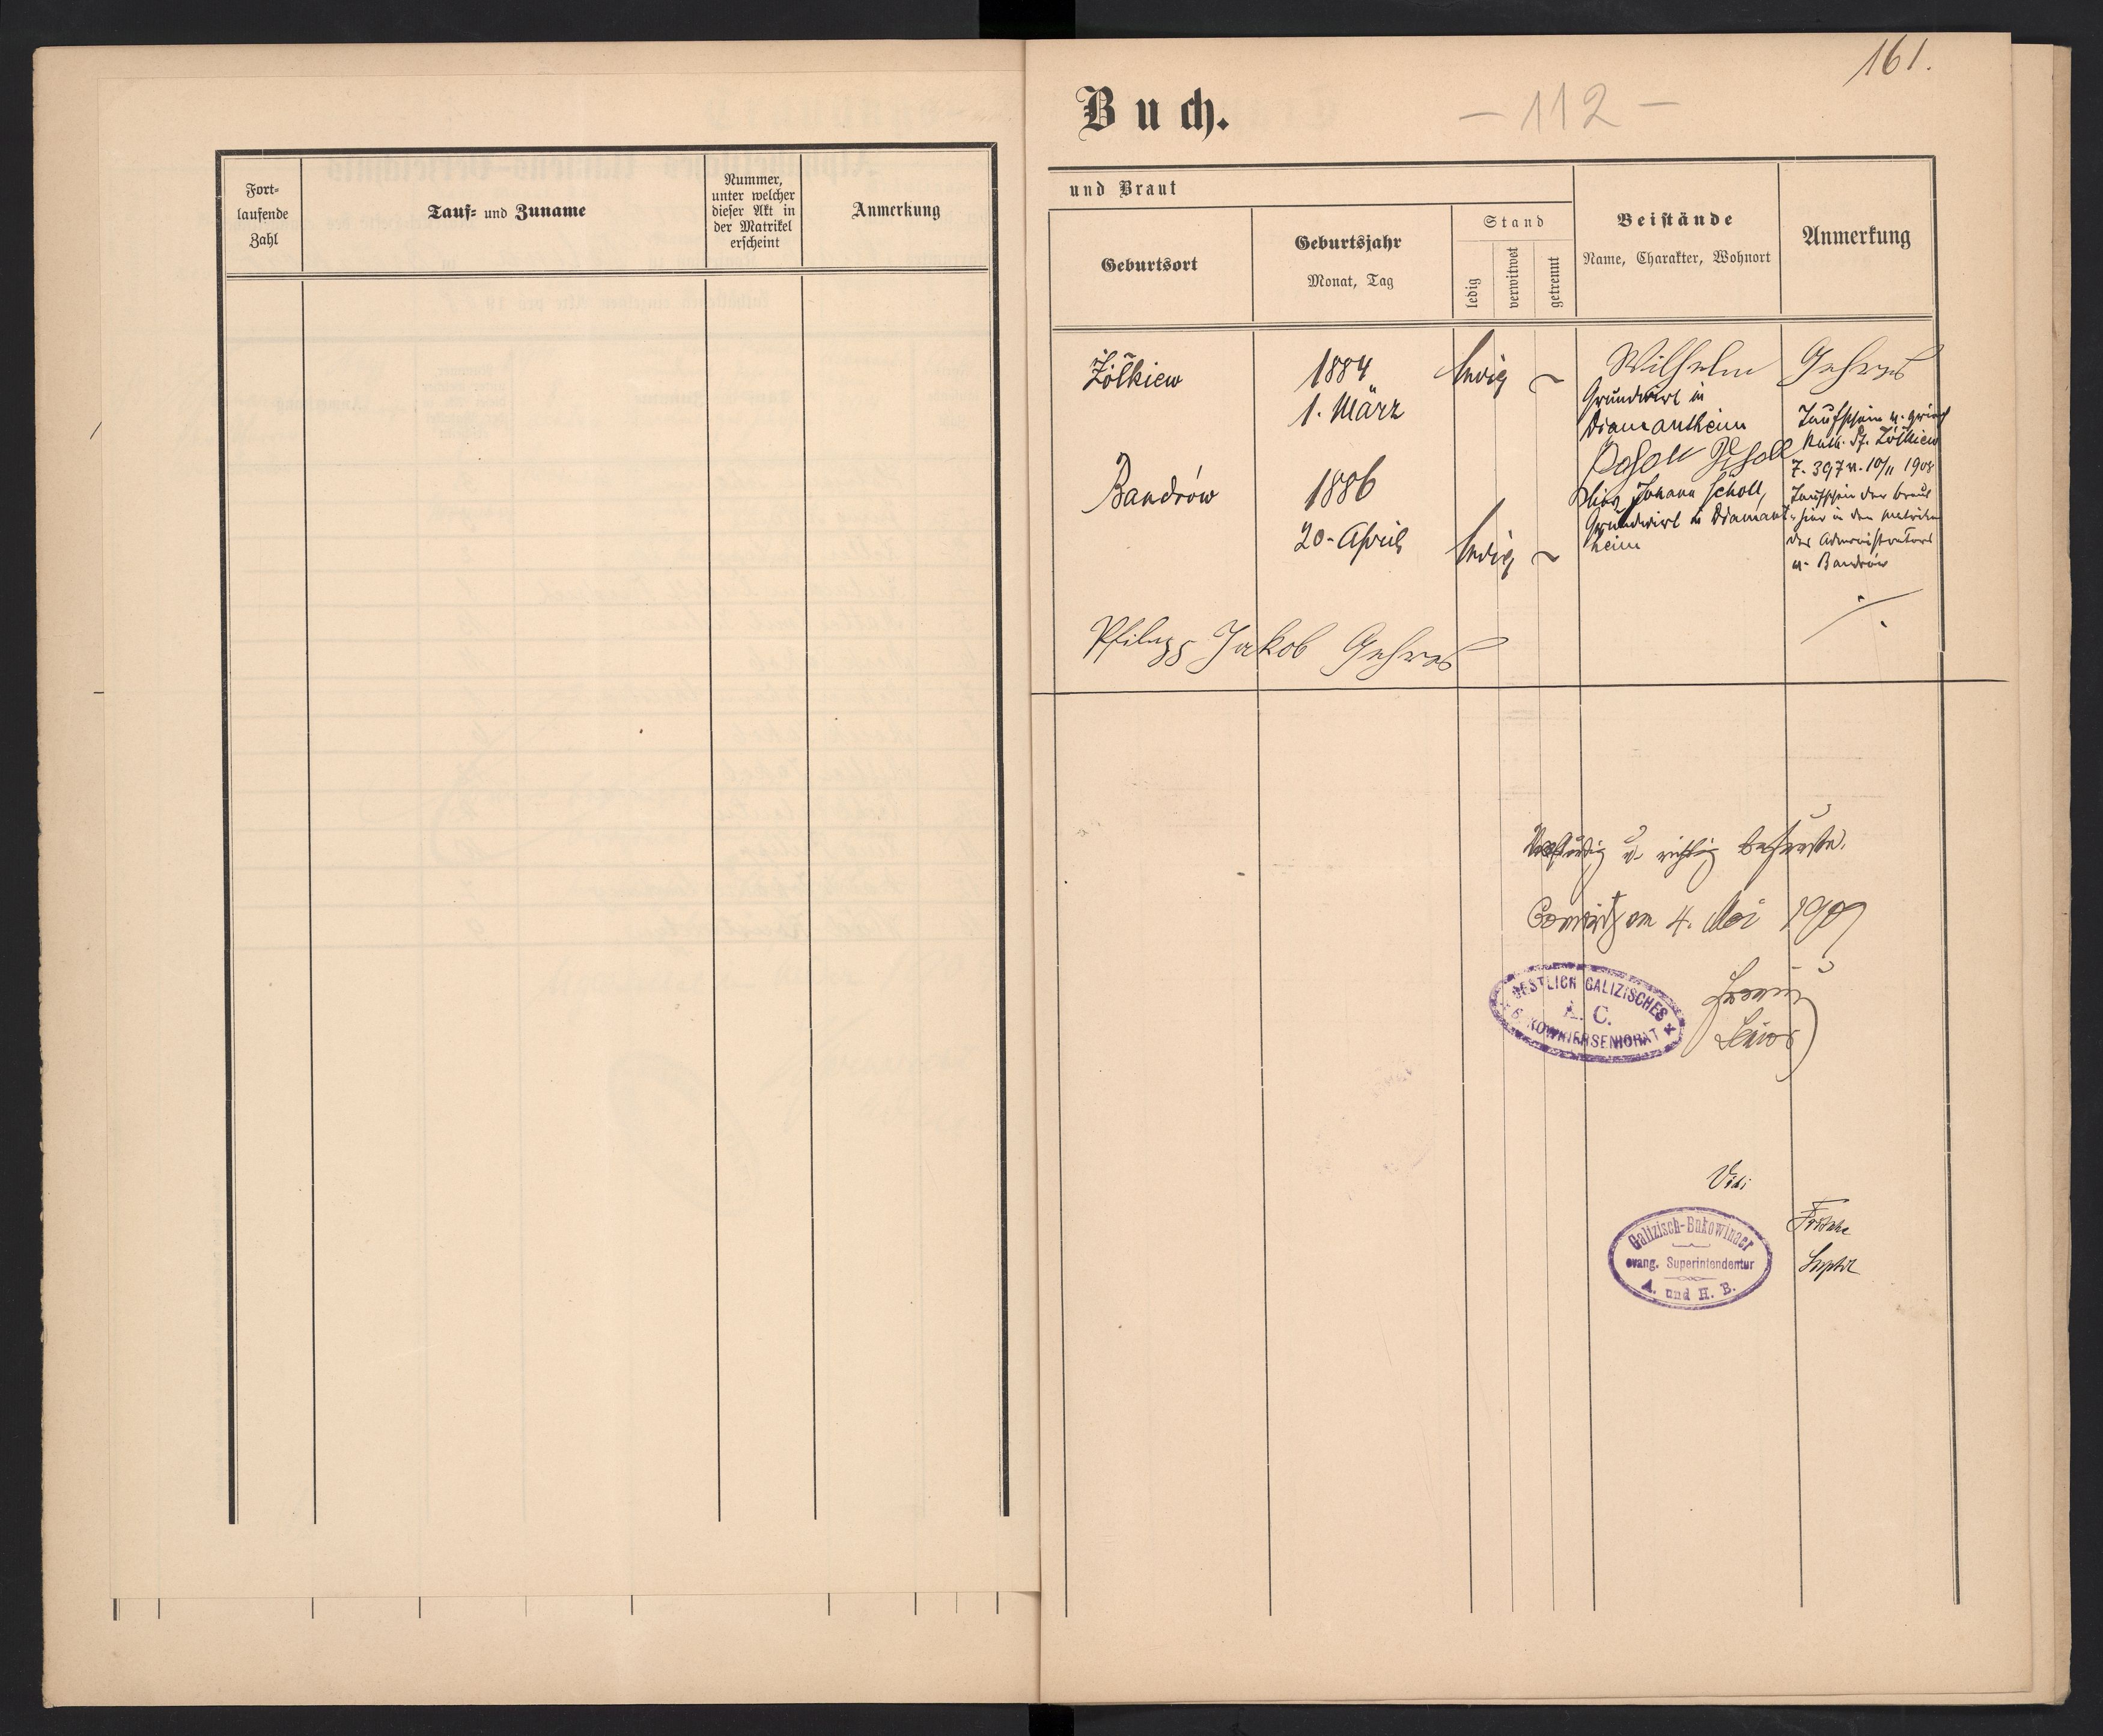 Fort-
laufende
Zahl
Tauf- und Zuname
Nummer,
unter welcher
dieser Akt in
der Matrikel
erscheint
Anmerkung
161.
Buch.
- 112 -
und Braut
Geburtsort
Geburtsjahr
Monat, Tag
Stand
ledig
verwitwet
getrennt
Beistände
Name, Charakter, Wohnort
Anmerkung
Żółkiew
1884
1. März
ledig
Wilhelm Gehres
Grundwirt in
Diamantheim
Scholl
Johann Scholl,
Grundwirt in Diamant-
heim
Taufschein v. griech
kath. Pf. Żółkiew
Z. 397 v. 10/11 1908
Taufschein der Braut
hier in den Matriken
der Administratur
v. Bandrów
Bandrów
1886
20. April
ledig
Philipp Jakob Gehres
u. richtig befunden.
am 4. Mai 1909
OESTLICH GALIZISCHES
A. C.
BUKOWINERSENIORAT
Senior
Vidi
Galizisch-Bukowinaer
evang. Superintendentur
A. und H. B.
Fritsche
Suptdt